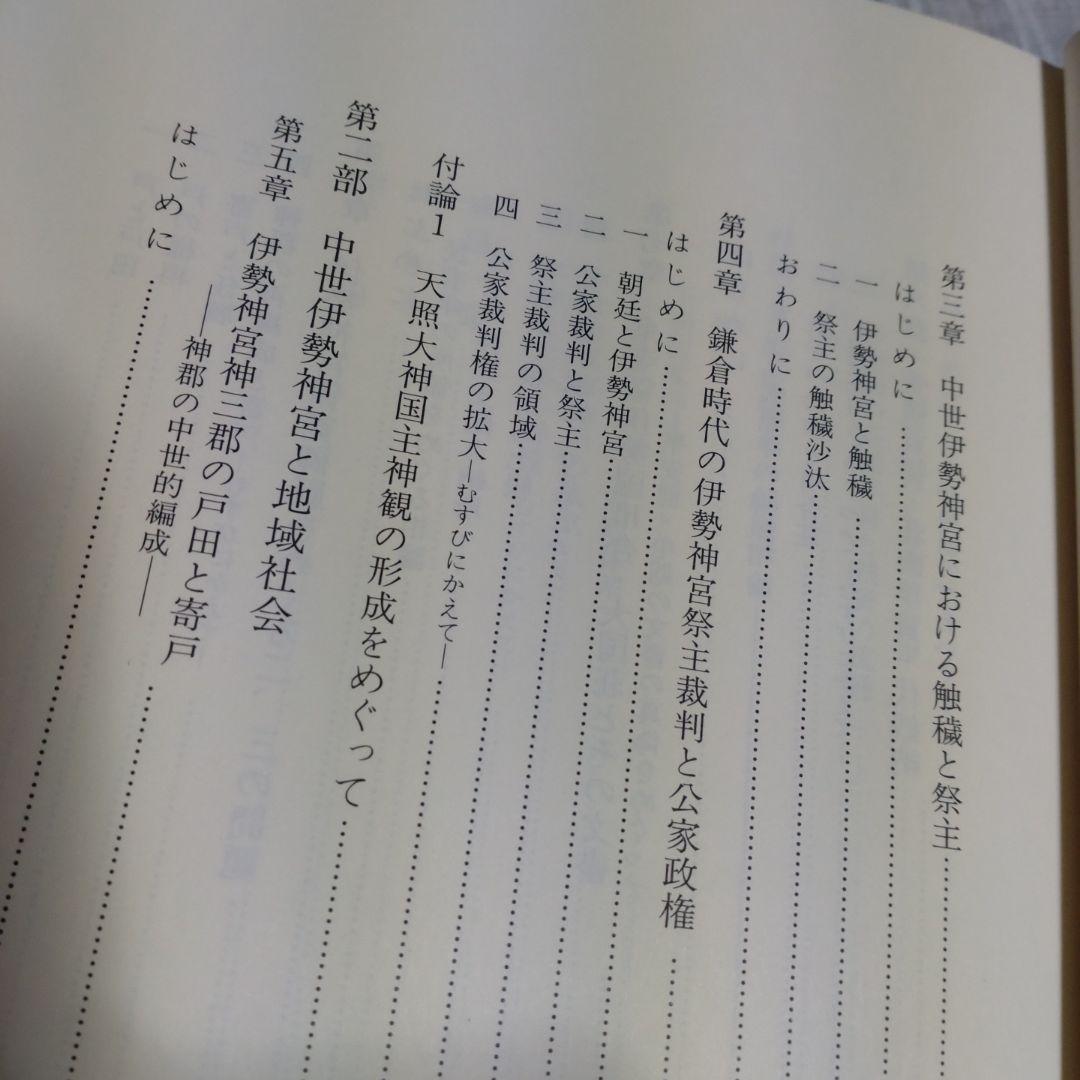 第三章　中世伊勢神宮における触穢と祭主……………
はじめに……………
一　伊勢神宮と触穢……………
二　祭主の触穢沙汰……………
おわりに……………
第四章　鎌倉時代の伊勢神宮祭主裁判と公家政権……………
はじめに……………
一　朝廷と伊勢神宮……………
二　公家裁判と祭主……………
三　祭主裁判の領域……………
四　公家裁判権の拡大―むすびにかえて―……………
付論1　天照大神国主神観の形成をめぐって……………
第二部　中世伊勢神宮と地域社会
第五章　伊勢神宮神三郡の戸田と寄戸……………
――神郡の中世的編成――
はじめに……………